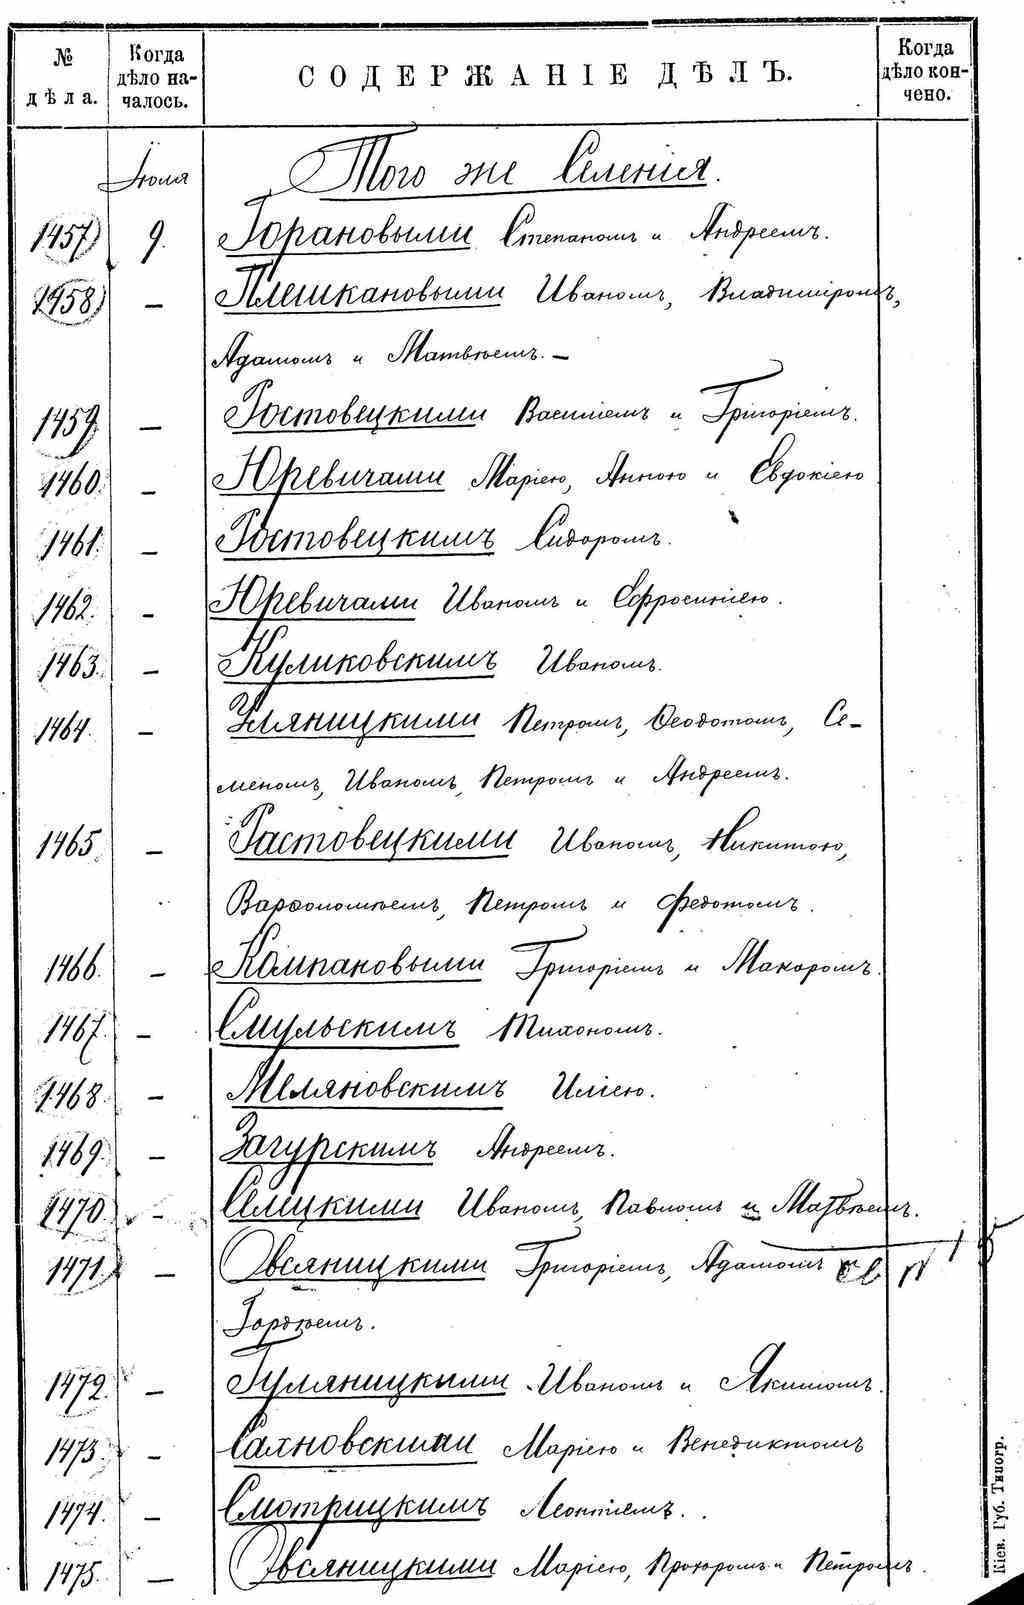 № дѣла. Когда дѣло началось. СОДЕРЖАНІЕ ДѢЛЪ. Когда дѣло кончено.
Іюля Того же Селенія.
1457 9. Горановыми Степаномъ и Андреемъ.
1458 — Плешкановыми Иваномъ, Владиміромъ,
Адамомъ и Матвѣемъ. —
1459 — Ростовецкими Василіемъ и Григоріемъ.
1460. — Юревичами Маріею, Анною и Евдокіею
1461. — Ростовецкимъ Сидоромъ.
1462. — Юревичами Иваномъ и Ефросиніею.
1463. — Куликовскимъ Иваномъ.
1464. — Уляницкими Петромъ, Ѳеодотомъ, Се-
меномъ, Иваномъ, Петромъ и Андреемъ.
1465. — Растовецкими Иваномъ, Никитою,
Варѳоломѣемъ, Петромъ и Федотомъ.
1466. — Компановыми Григоріемъ и Макаромъ.
1467. — Смульскимъ Тихономъ.
1468. — Меляновскимъ Иліею.
1469. — Загурскимъ Андреемъ.
1470. — Селецкими Иваномъ, Павломъ и Матвѣемъ.
1471. — Овсяницкими Григоріемъ, Адамомъ
Гордѣемъ.
1472. — Гуляницкыми Иваномъ и Якимомъ.
1473. — Сахновскими Маріею и Венедиктомъ
1474. — Смотрицкимъ Леонтіемъ.
1475. — Овсяницкими Маріею, Прохоромъ и Петромъ.
Кіев. Губ. Типогр.